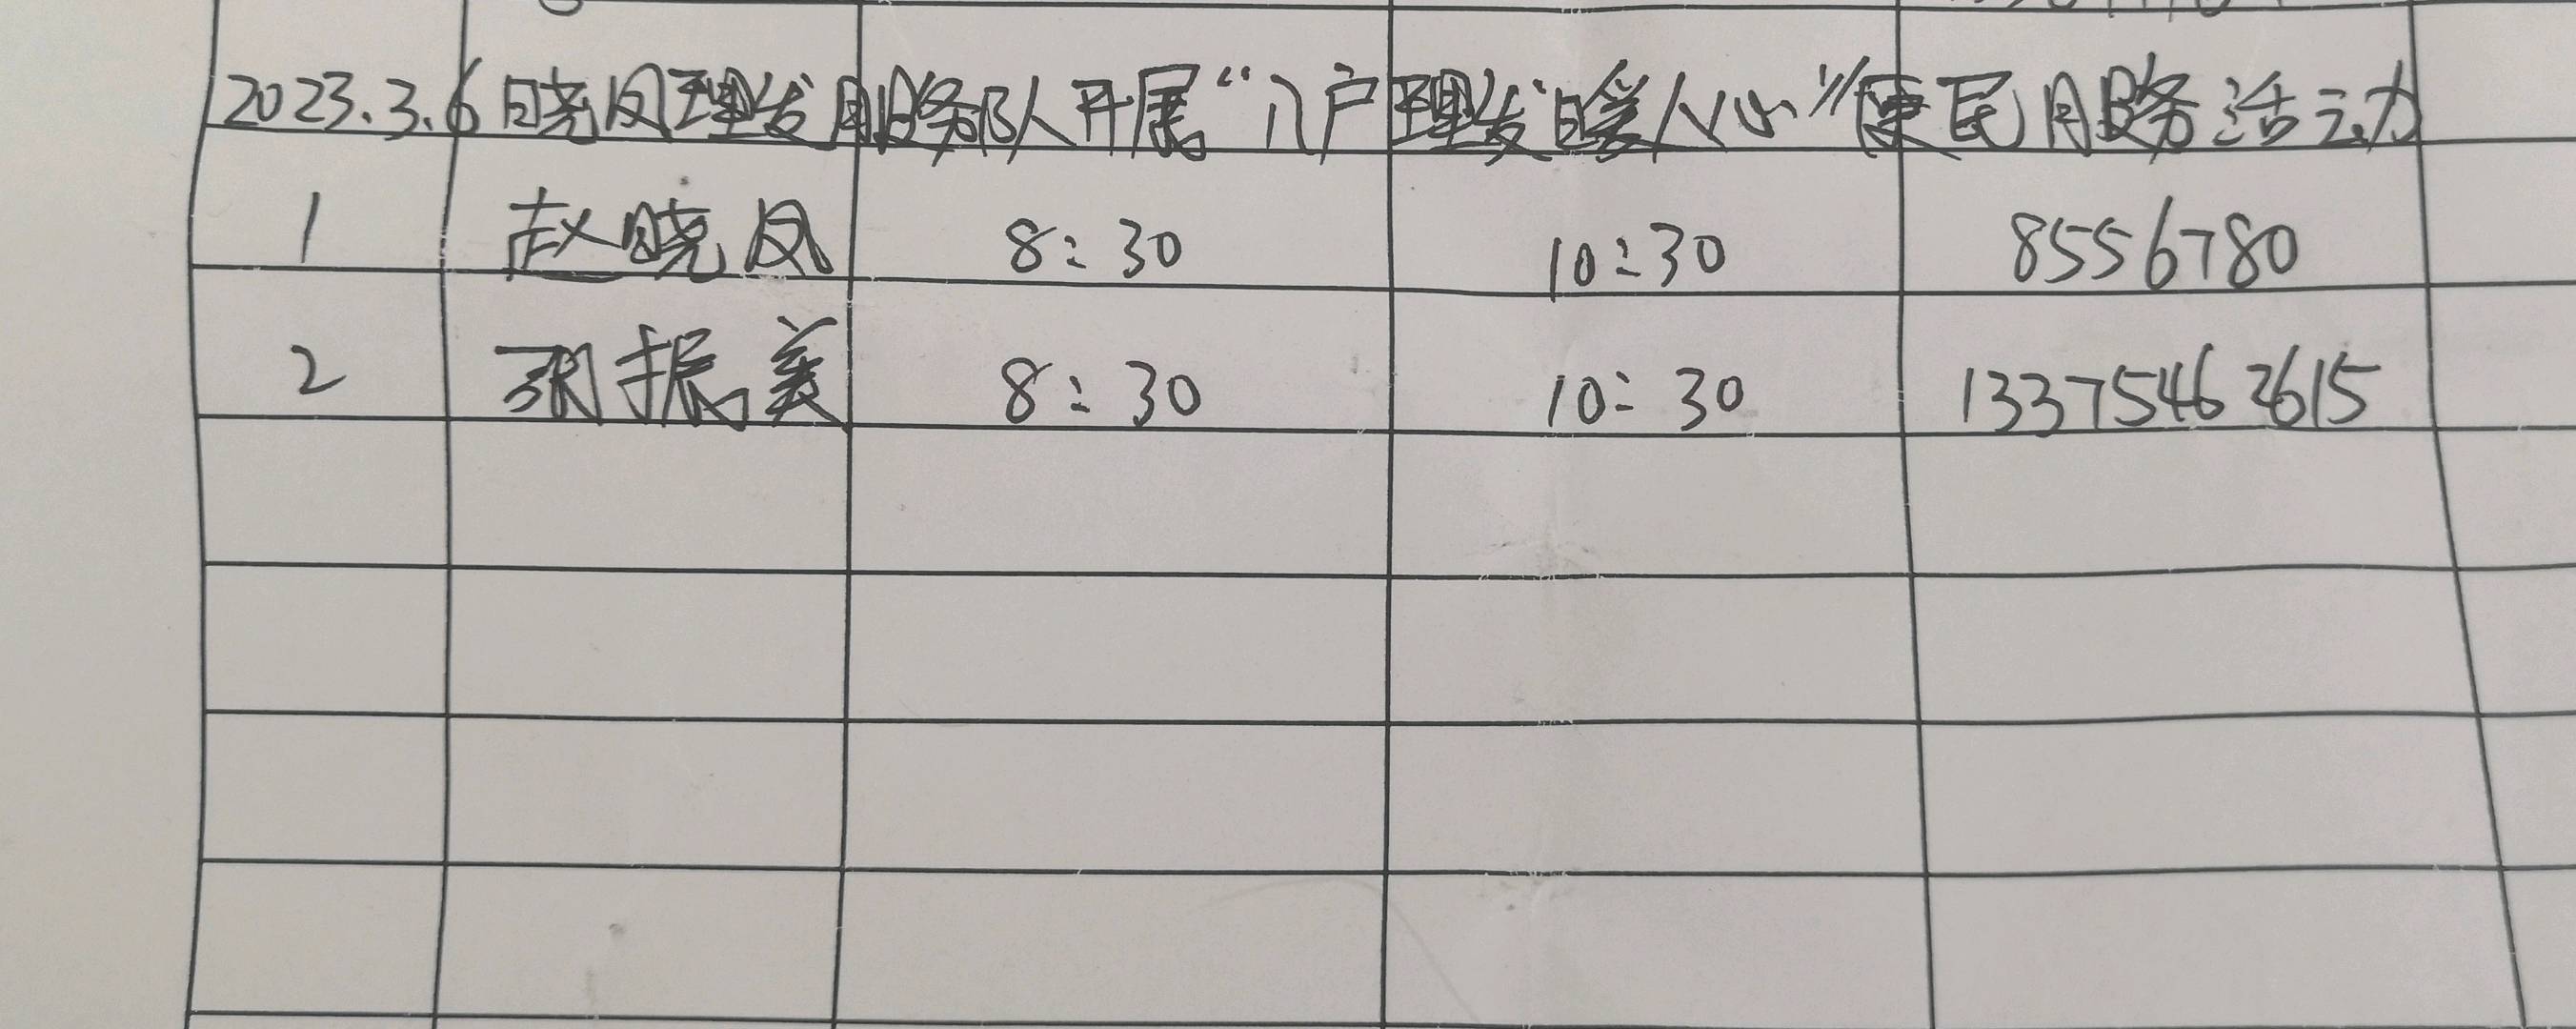 2023.3.6晓凤理发服务队人开展“入户理发暖人心”便民服务活动
1 赵晓凤 8:30 10:30 8556780
2 张振美 8:30 10:30 13375462615